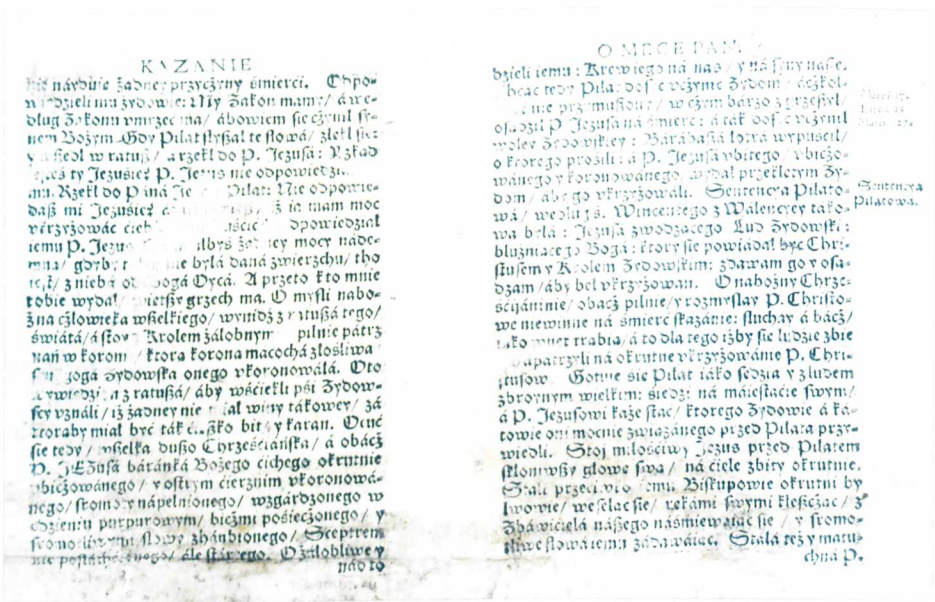 KAZANIE
nie náyduie żadney przyczyny śmierci. Odpo-
wiedzieli mu żydowie: My Zakon mamy/ á we-
dług Zakonu vmrzeć ma/ ábowiem sie czynił sy-
nem Bożym. Gdy Piłat słyszał te słowá/ zlekł sie:
y wszedł w ratusz/ a rzekł do P. Jezusá: Zkąd
jesteś ty Jezusie? P. Jezus nie odpowiedział
mu. Rzekł do Páná Piłat: Nie odpowie-
dasz mi Jezusie? iż ia mam moc
vkrzyżowáć ciebie odpowiedział
iemu P. Jezus miałbyś żadney mocy náde-
mną/ gdyby nie byłá daná zwierzchu/ tho
iest/ z niebá od Bogá Oycá. A przeto kto mnie
tobie wydał/ wietszy grzech ma. O myśli nabo-
żna człowieká wszelkiego/ wynidź z ratuszá tego/
świátá/ á Krolem żałobnym pilnie pátrz
nań w koronie/ ktora korona macochá złośliwa
Synagogá Żydowská onego vkoronowáłá. Oto
wywiedzion z ratuszá/ áby wściekli psi Żydow-
scy vználi/ iż żadney nie miał winy tákowey/ zá
ktoraby miał być ták ciężko bity y karan. Ocuć
sie tedy/ wszelka duszo Chrześciáńska/ á obácz
P. JEzusá báránká Bożego cichego okrutnie
vbiczowánego/ y ostrym cierznim vkoronowá-
nego/ sromoty nápełnionego/ wzgárdzonego w
odzieniu purpurowym/ biczmi posieczonego/ y
sromotliwymi słowy zháńbionego/ Sceptrem
nie postáchetnego/ ále stárego. O żałobliwe y
nád to
O MECE PAN.
dzieli iemu: Krew iego ná nas/ y ná syny násze.
Chcąc tedy Piłat dosyć vczynić Żydom/ áczkol-
wie przymuszony/ w czym bárzo zgrzeszył/
osądził P. Jezusá ná śmierć: á ták dosyć vczynił
woley Żydowskiey: Bárábaszá łotrá wypuścił/
o ktorego prosili: á P. Jezusá vbitego/ vbiczo-
wánego y koronowánego/ wydał przeklętym Ży-
dom/ áby go vkrzyżowáli. Sentencya Piłato-
wá/ wedlu ś. Wincentego z Walencyey táko-
wa byłá: Jezusá zwodzącego Lud Żydowski:
bluźniącego Bogá: ktory sie powiádał być Chri-
stusem y Krolem Żydowskim: zdawam go y osą-
dzam/ áby był vkrzyżowan. O nabożny Chrze-
ścijáninie/ obacz pilnie/ y rozmyslay P. Christo-
we niewinne ná śmierć skazánie: słuchay á bácz/
iáko wnet trąbią/ á to dla tego iżby sie ludzie zbie
á pátrzyli ná okrutne vkrzyżowánie P. Chri-
stusow. Gotuie sie Piłat iáko sędzia y z ludem
zbroynym wielkim: siedzi ná máiestacie swym/
á P. Jezusowi każe stać/ ktorego Żydowie á ká-
towie oni mocnie związánego przed Piłatá przy-
wiedli. Stoi miłościwy Jezus przed Piłatem
skłoniwszy głowę swą/ ná ciele zbity okrutnie.
Stáli przeciwko iemu Biskupowie okrutni by
lwowie/ weseląc sie/ rękámi swymi kleszcząc/ z
Zbáwicielá nászego náśmiewáiąc sie/ y sromo-
tliwe słowá iemu zádawáiąc. Stałá też y mátu-
chná P.
Sentencya
Piłatowa.